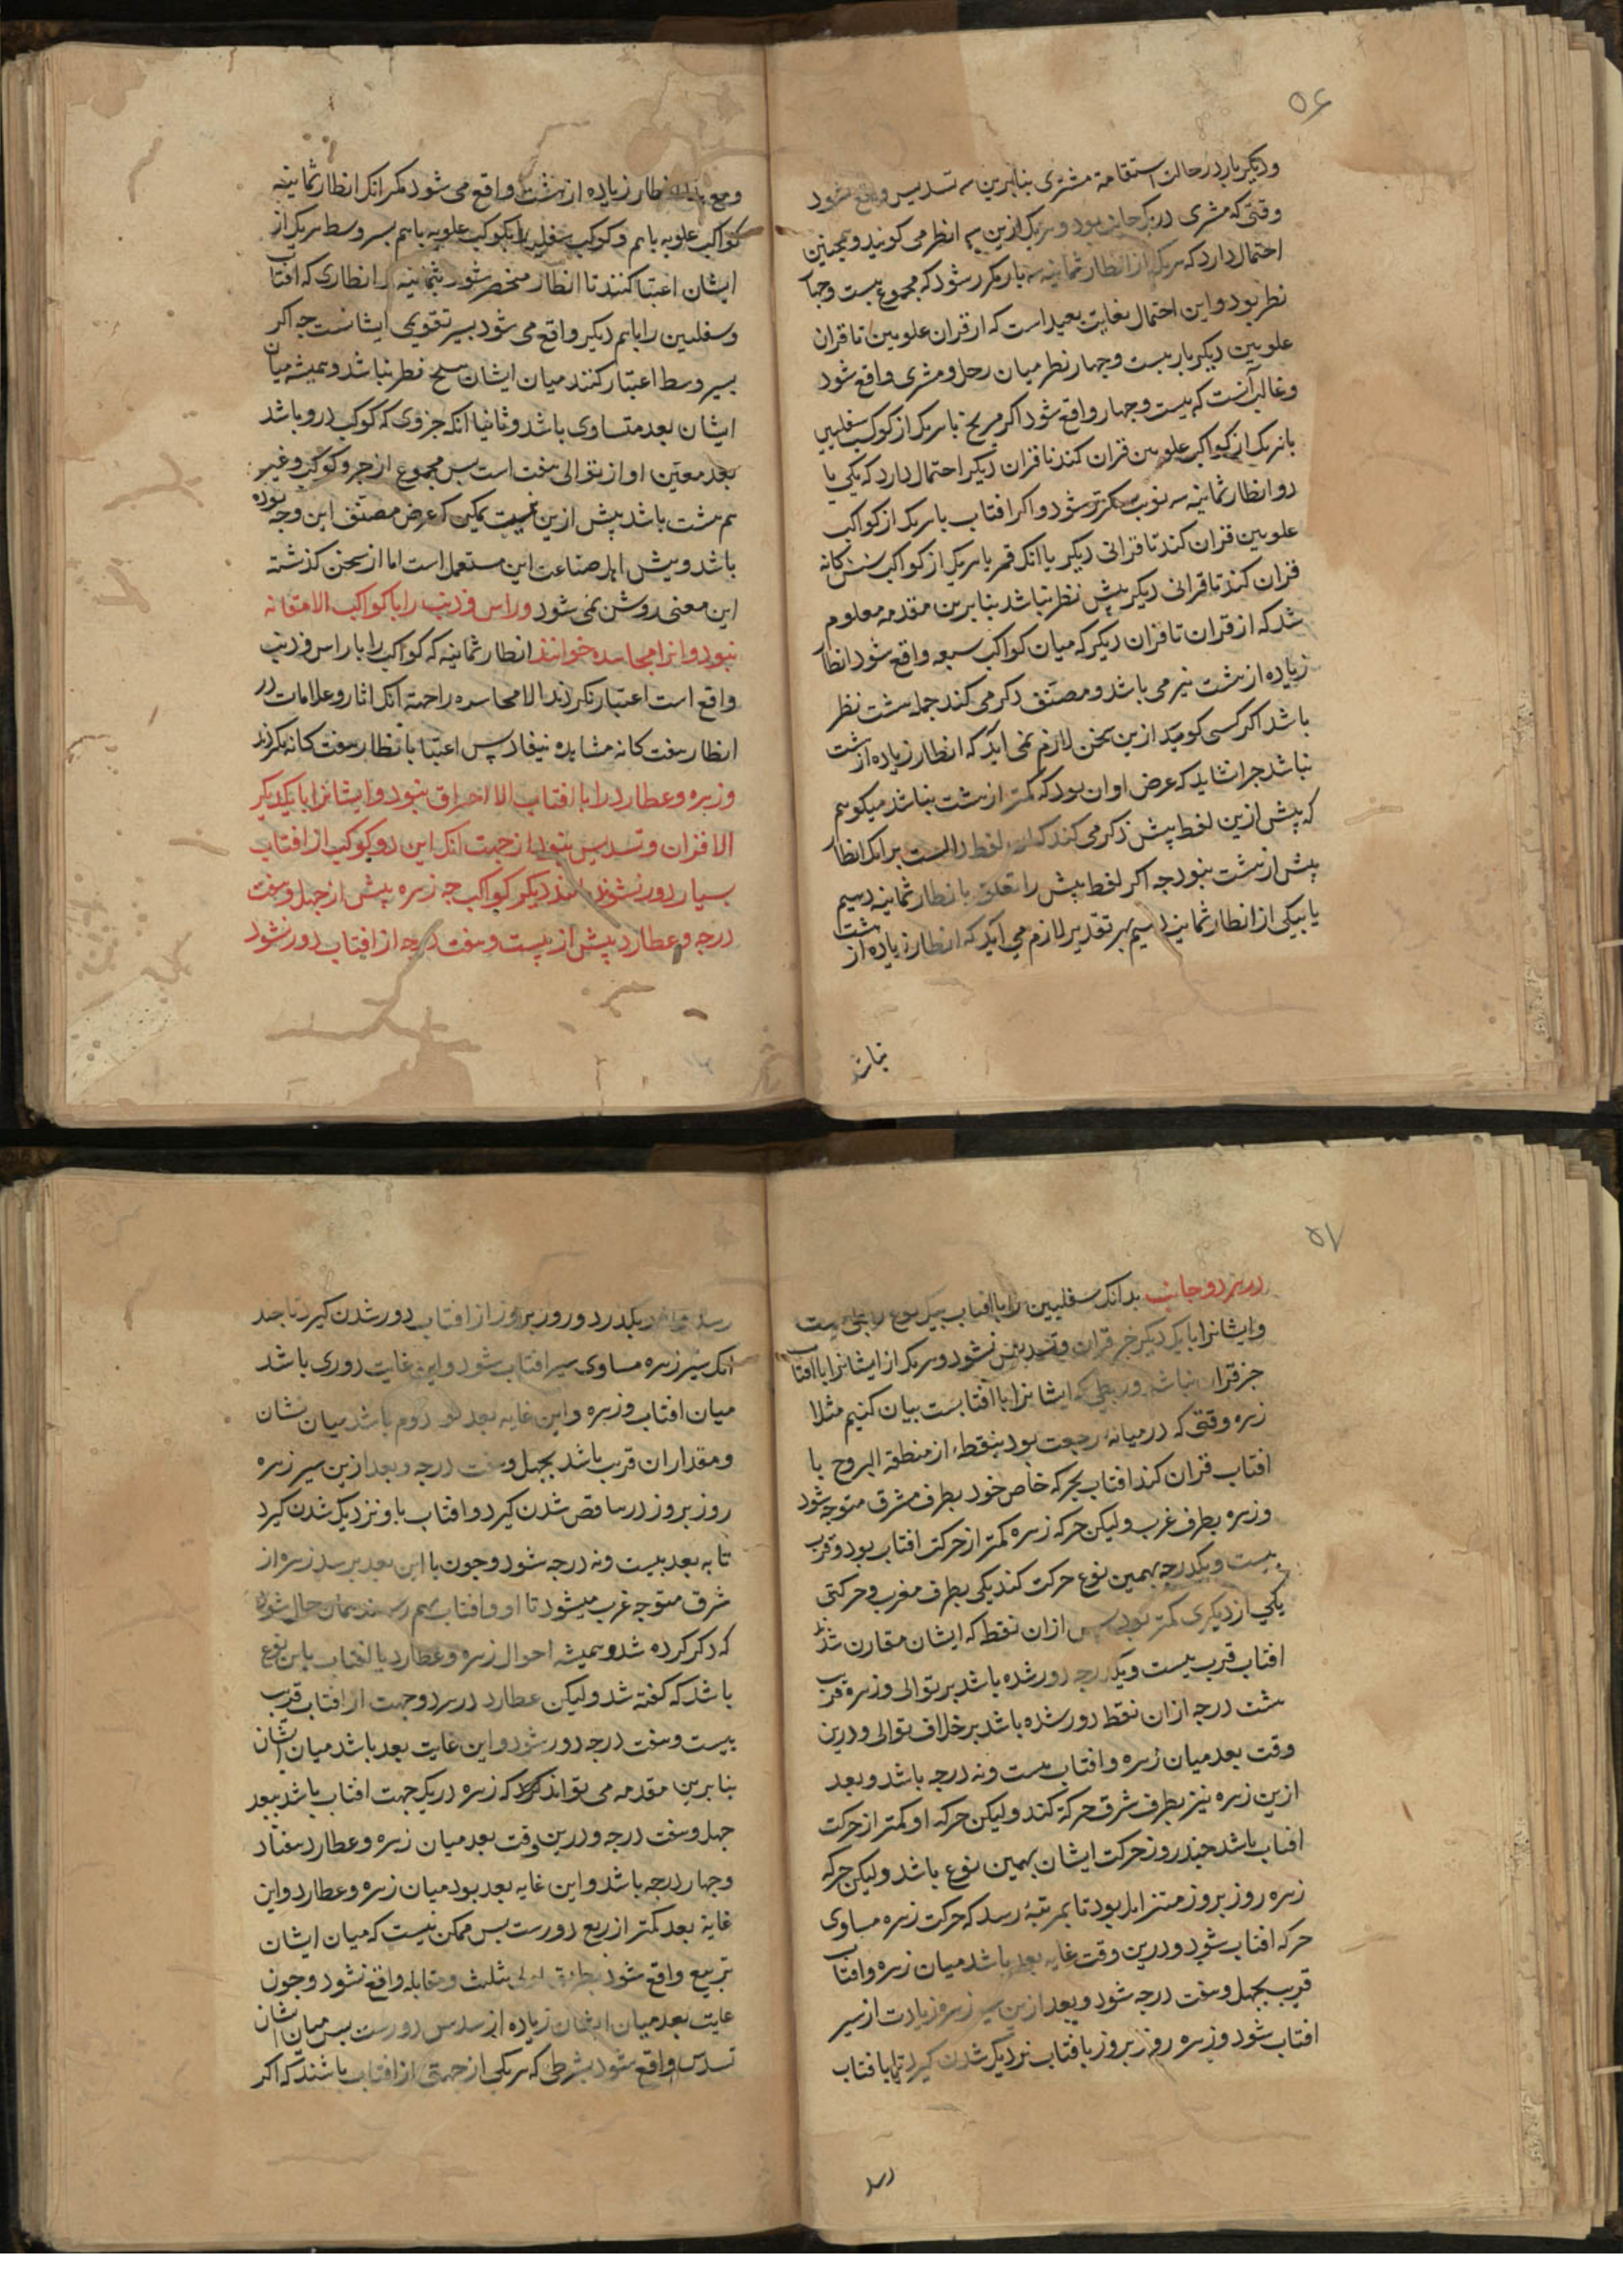 ۵۶
و دیکر بار در حالت استقامة مشتری بنابرین سه تسدیس واقع شود
وقتی که مشتری در یک جانب بود و هریک ازین سه انظر می کویند و همچنین
احتمال دارد که هریک از انظار ثمانیه سه بار مکرر شود که مجموع بیست و جها
نظر بود و این احتمال بغایت بعید است که از قران علویین تا قران
علویین دیکر بار بیست و جهار نظر میان زحل و مشتری واقع شود
و غالب آنست که بیست و جهار واقع شود اکر مریخ با هریک از کوکب سفلیین
با هریک از کواکب علویین قران کند تا قران دیکر احتمال دارد که یکی یا
دو انظار ثمانیه سه نوبت مکرر شود و اکر افتاب با هریک از کواکب
علویین قران کند تا قرانی دیکر یا انک قمر با هریک از کواکب شش کانه
قران کند تا قرانی دیکر بیش نظر نباشد بنابرین مقدمه معلوم
شد که از قران تا قران دیکر که میان کواکب سبعه واقع شود انظا
زیاده از هشت نیز می باشد و مصنف ذکر می کند جمله هشت نظر
باشد اکر کسی کوید ازین سخن لازم نمی اید که انظار زیاده از هشت
نباشد جرا نشاید که غرض او ان بود که کمتر از هشت نباشد میکویم
که پیش ازین لفظ بیش ذکر می کند که لفظ دالست بر انک انظا
بیش از هشت نبود جه اکر لفظ بیش را تعلق بانظار ثمانیه دهیم
یا بیکی از انظار ثمانیه دهیم بر تقدیر لازم می آید که انظار زیاده از هشت
نباشد
و مع هذا انظار زیاده از هشت واقع می شود مکر انک انظار ثمانیه
کواکب علویه باهم و کوکب سفلین را بکوکب علویه باهم بسیر وسط هریک از
ایشان اعتبا کنند تا انظار منحصر شود بثمانیه انظاری که افتاب
و سفلیین را باهم دیکر واقع می شود بسیر تقویمی ایشانست جه اکر
بسیر وسط اعتبار کنند میان ایشان هیج نظر نباشد و همیشه میان
ایشان بعد متساوی باشد و ثانیا انکه جزوی که کوکب درو باشد
بعد معین او از توالی هفت است بس مجموع از جزو کوکب و غیر
هم هشت باشد پیش ازین نیست یمکن که غرض مصنف این وجه بوده
باشد و پیش اهل صناعت این مستعمل است اما از سخن کذشته
این معنی روشن نمی شود و راس و ذنب را با کواکب الا مقانه
نبود و انرا مجاسده خوانند انظار ثمانیه که کواکب را با راس و ذنب
واقع است اعتبار نکردند الا مجاسده را جهة آنک اثار و علامات در
انظار هفت کانه مشاهده نیفاد پس اعتبا بانظار هفت کانه نکردند
و زهره و عطارد را با افتاب الا احتراق نبود و ایشانرا بایکدیکر
الا قران و تسدیس نبود از جهت انک این دو کوکب از افتاب
بسیار دور نشوند مانند دیکر کواکب جه زهره بیش از جهل و هفت
درجه و عطارد بیش از بیست و هفت درجه از افتاب دور نشود
۵۷
در هر دو جانب بدانک سفلیین را با افتاب بیک نوع ربطی هست
و ایشانرا بایک دیکر جز قران و تسدیس نشود و هریک از ایشانرا با افتاب
جز قران نباشد و ربطی که ایشانرا با افتابست بیان کنیم مثلا
زهره وقتی که در میانه رجعت بود بنقطه از منطقة البروج با
افتاب قران کند افتاب بحرکه خاص خود بطرف مشرق متوجه شود
و زهره بطرف غرب ولیکن حرکه زهره کمتر از حرکت افتاب بود و قرب
بیست و یکدرجه بهمین نوع حرکت کند یکی بطرف مغرب و حرکتی
یکی از دیکری کمتر بود پس ازان نقطه که ایشان مقارن شدند
افتاب قرب بیست و یکدرجه دور شده باشد بر توالی و زهره قرب
هشت درجه ازان نقطه دور شده باشد بر خلاف توالی و درین
وقت بعد میان زهره و افتاب بیست و نه درجه باشد و بعد
ازین زهره نیز بطرف شرق حرکة کند ولیکن حرکه او کمتر از حرکت
افتاب باشد چند روز حرکت ایشان بهمین نوع باشد ولیکن حرکه
زهره روز بروز متزاید بود تا بمرتبهٔ رسد که حرکت زهره مساوی
حرکه افتاب شود و درین وقت غایه بعد باشد میان زهره و افتاب
قریب بجهل و هفت درجه شود و بعد ازین سیر زهره زیادت از سیر
افتاب شود و زهره روز بروز بافتاب نزدیک شدن کیرد تا بافتاب
رسد
رسد و ازو بکذرد و روز بروز از افتاب دور شدن کیرد تا جند
انک سیر زهره مساوی سیر افتاب شود و این غایت دوری باشد
میان افتاب و زهره و این غایه بعد دوم باشد میان نشان
و مقدار ان قریب باشد بجهل و هفت درجه و بعد ازین سیر زهره
روز بروز در تناقص شدن کیرد و افتاب باو نزدیک شدن کیرد
تا به بعد بیست و نه درجه شود و چون با این بعد برسد زهره از
شرق متوجه غرب میشود تا او و افتاب بهم رسند همان حال شود
که ذکر کرده شد و همیشه احوال زهره و عطارد با افتاب باین نوع
باشد که کفته شد ولیکن عطارد در هر دو جهت از افتاب قرب
بیست و هفت درجه دور شود و این غایت بعد باشد میان ایشان
بنابرین مقدمه می تواند کرد که زهره در یک جهت افتاب باشد ببعد
جهل و هفت درجه و درین وقت بعد میان زهره و عطارد هفتاد
و جهار درجه باشد و این غایه بعد بود میان زهره و عطارد و این
غایة بعد کمتر از ربع دورست بس ممکن نیست که میان ایشان
تربیع واقع شود بطریق اولی تثلیث و مقابله واقع نشود و جون
غایت بعد میان ایشان زیاده از سدس دورست بس میان ایشان
تسدیس واقع شود بشرطی که هریکی از جهتی از افتاب باشند که اکر